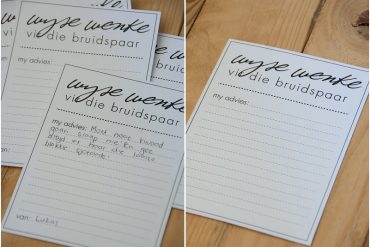 vo
wyse wenke
vir die bruidspaar
my advies:
wyse wenke
vir die bruidspaar
my advies: Moet nooit kwaad
gaan slaap nie. En gee
altyd vir haar die laaste
blokkie
van: Lukas
wyse wenke
vir die bruidspaar
my advies: